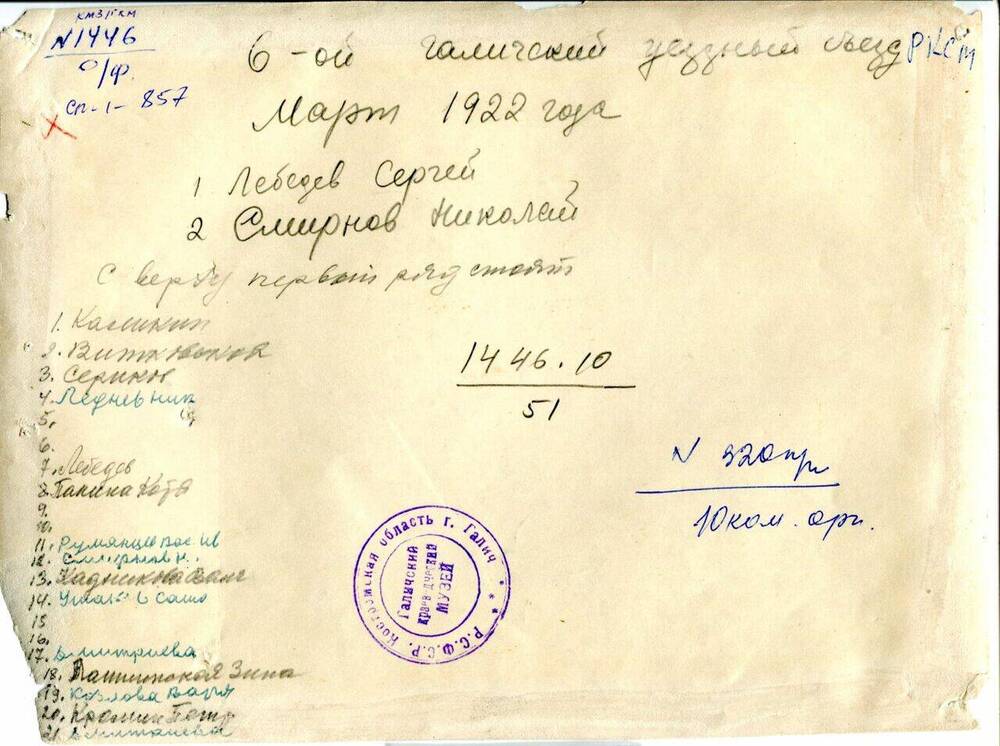 КМЗ/ГКМ
N1446
О/Ф.
Сп-1-857
6-ой галичский уездный съезд РКСМ
Март 1922 года
1 Лебедев Сергей
2 Смирнов Николай
С верху первый ряд стоят
1. Каликин
2. Витковский
3. Сериков
4. Ледневник
5.
6.
7. Лебедев
8. Панина Катя
9.
10.
11. Румянцев Вас Ив
12. Смирнов Н.
13. Кадникова Валя
14. Саша
15
16.
17. Дмитриева
18. Зина
19. Козлова Варя
20. Кромин Петр
21. Дмитриева
1446.10
51
N 320пр
10 ком. орг.
Р.С.Ф.С.Р. Костромская область г. Галич
Галичский
краеведческий
МУЗЕЙ